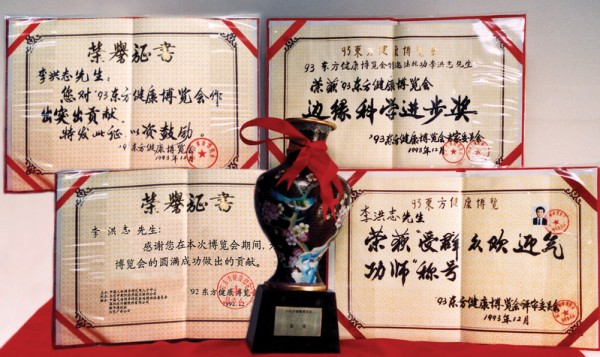 荣誉证书
李洪志先生:
您对'93东方健康博览会作
出突出贡献,
特发此证以资鼓励。
'93东方健康博览会
1993年12月
93東方健康博览会
荣获'93东方健康博览会
边缘科学进步奖
'93东方健康博览会评审委员会
1993年12月
荣誉证书
李洪志先生:
感谢您在本次博览会期间,
博览会的圆满成功做出的贡献。
'92东方健康博览会
1992.12
93東方健康博览
李洪志先生
荣获"受群众欢迎气
功师"称号
'93东方健康博览会评审委员会
1993年12月